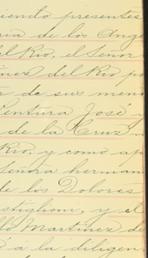 iendo presentes
ria de los Ange
del Rio, el Señor
inez del Rio po
r de sus meno
Ventura José y
de la Cruz
Rio, y como ap
Señora herman
de los Dolores
stiglioni, y el
llo Martinez de
é a la diligen